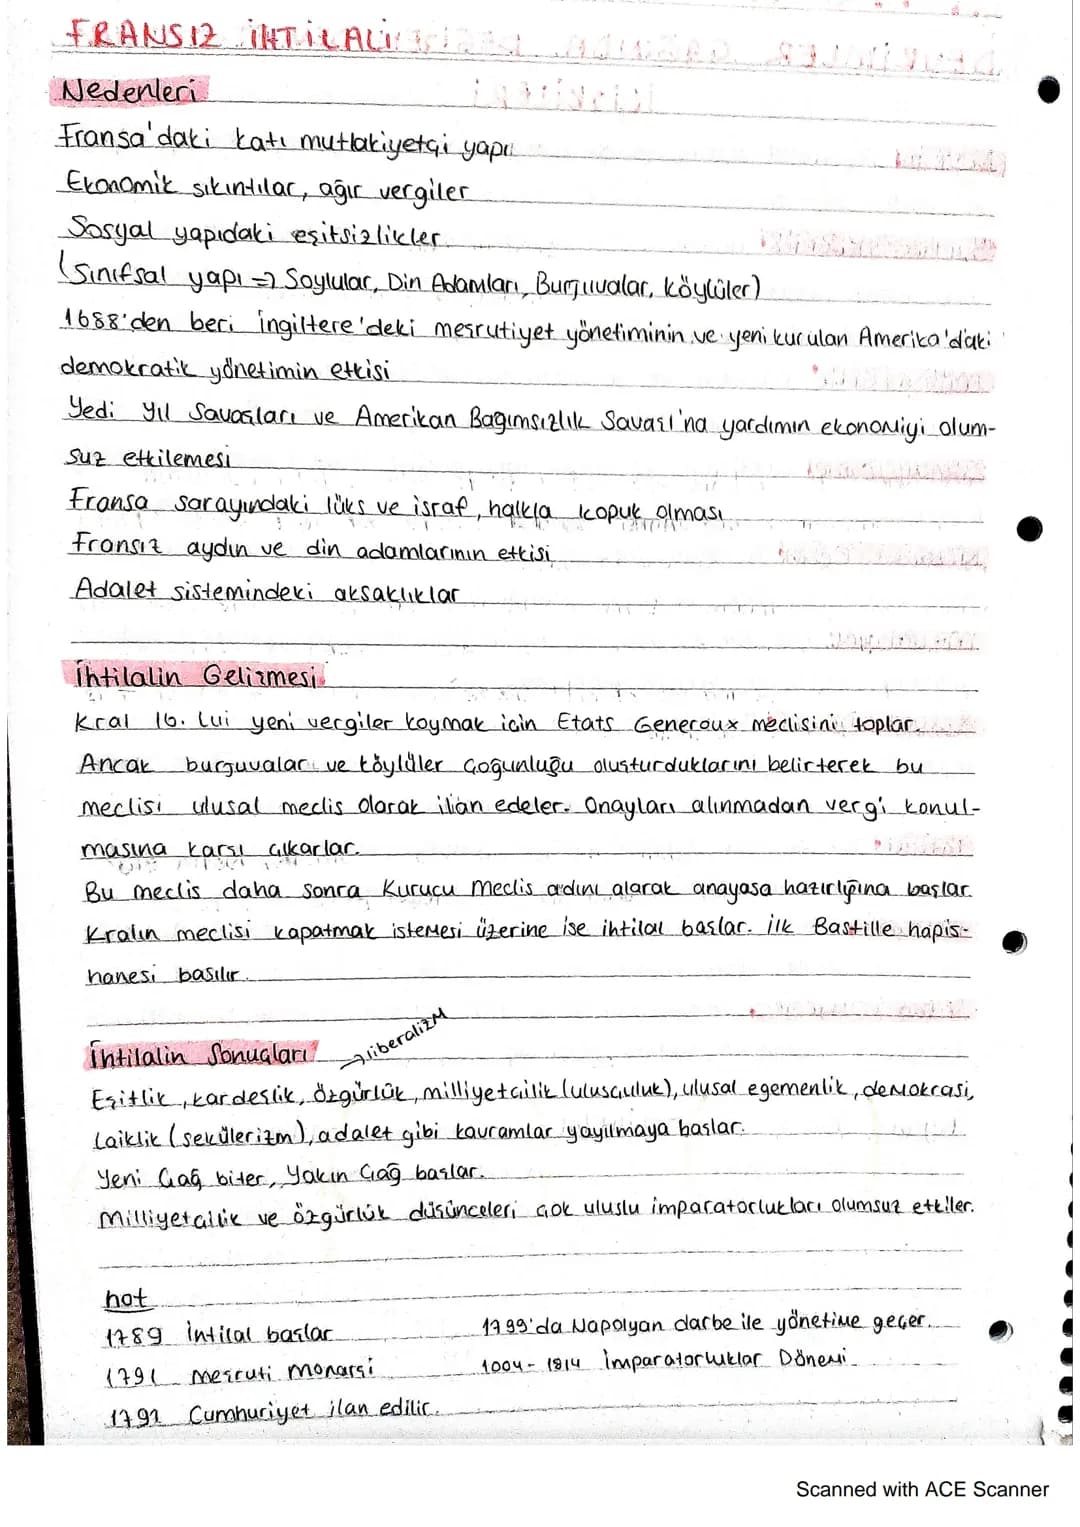 FRANSIZ İHTİLALİ
Nedenleri
Fransa'daki katı mutlakiyetçi yapı
Ekonomik sıkıntılar, ağır vergiler
Sosyal yapıdaki eşitsizlikler
(Sınıfsal yapı => Soylular, Din Adamları, Burjuvalar, köylüler)
1688'den beri İngiltere'deki meşrutiyet yönetiminin ve yeni kurulan Amerika'daki
demokratik yönetimin etkisi
Yedi Yıl Savaşları ve Amerikan Bağımsızlık Savaşı'na yardımın ekonomiyi olum-
suz etkilemesi
Fransa sarayındaki lüks ve israf, halkla kopuk olması
Fransız aydın ve din adamlarının etkisi
Adalet sistemindeki aksaklıklar
İhtilalin Gelişmesi
Kral 16. Lui yeni vergiler koymak için Etats Generoux meclisini toplar.
Ancak burjuvalar ve köylüler çoğunluğu oluşturduklarını belirterek bu
meclisi ulusal meclis olarak ilan edeler. Onayları alınmadan vergi konul-
masına karşı çıkarlar.
Bu meclis daha sonra Kurucu Meclis adını alarak anayasa hazırlığına başlar.
Kralın meclisi kapatmak istemesi üzerine ise ihtilal başlar. İlk Bastille hapis-
hanesi basılır.
İhtilalin Sonuçları
→liberalizm
Eşitlik, kardeşlik, özgürlük, milliyetçilik (ulusçuluk), ulusal egemenlik, demokrasi,
Laiklik (sekülerizm), adalet gibi kavramlar yayılmaya başlar.
Yeni Çağ biter, Yakın Çağ başlar.
Milliyetçilik ve özgürlük düşünceleri çok uluslu imparatorlukları olumsuz etkiler.
not
1789 İhtilal başlar
1799'da Napolyan darbe ile yönetime geçer.
1791 Meşruti Monarşi
1004-1814 İmparatorluklar Dönemi
1792 Cumhuriyet ilan edilir.
Scanned with ACE Scanner